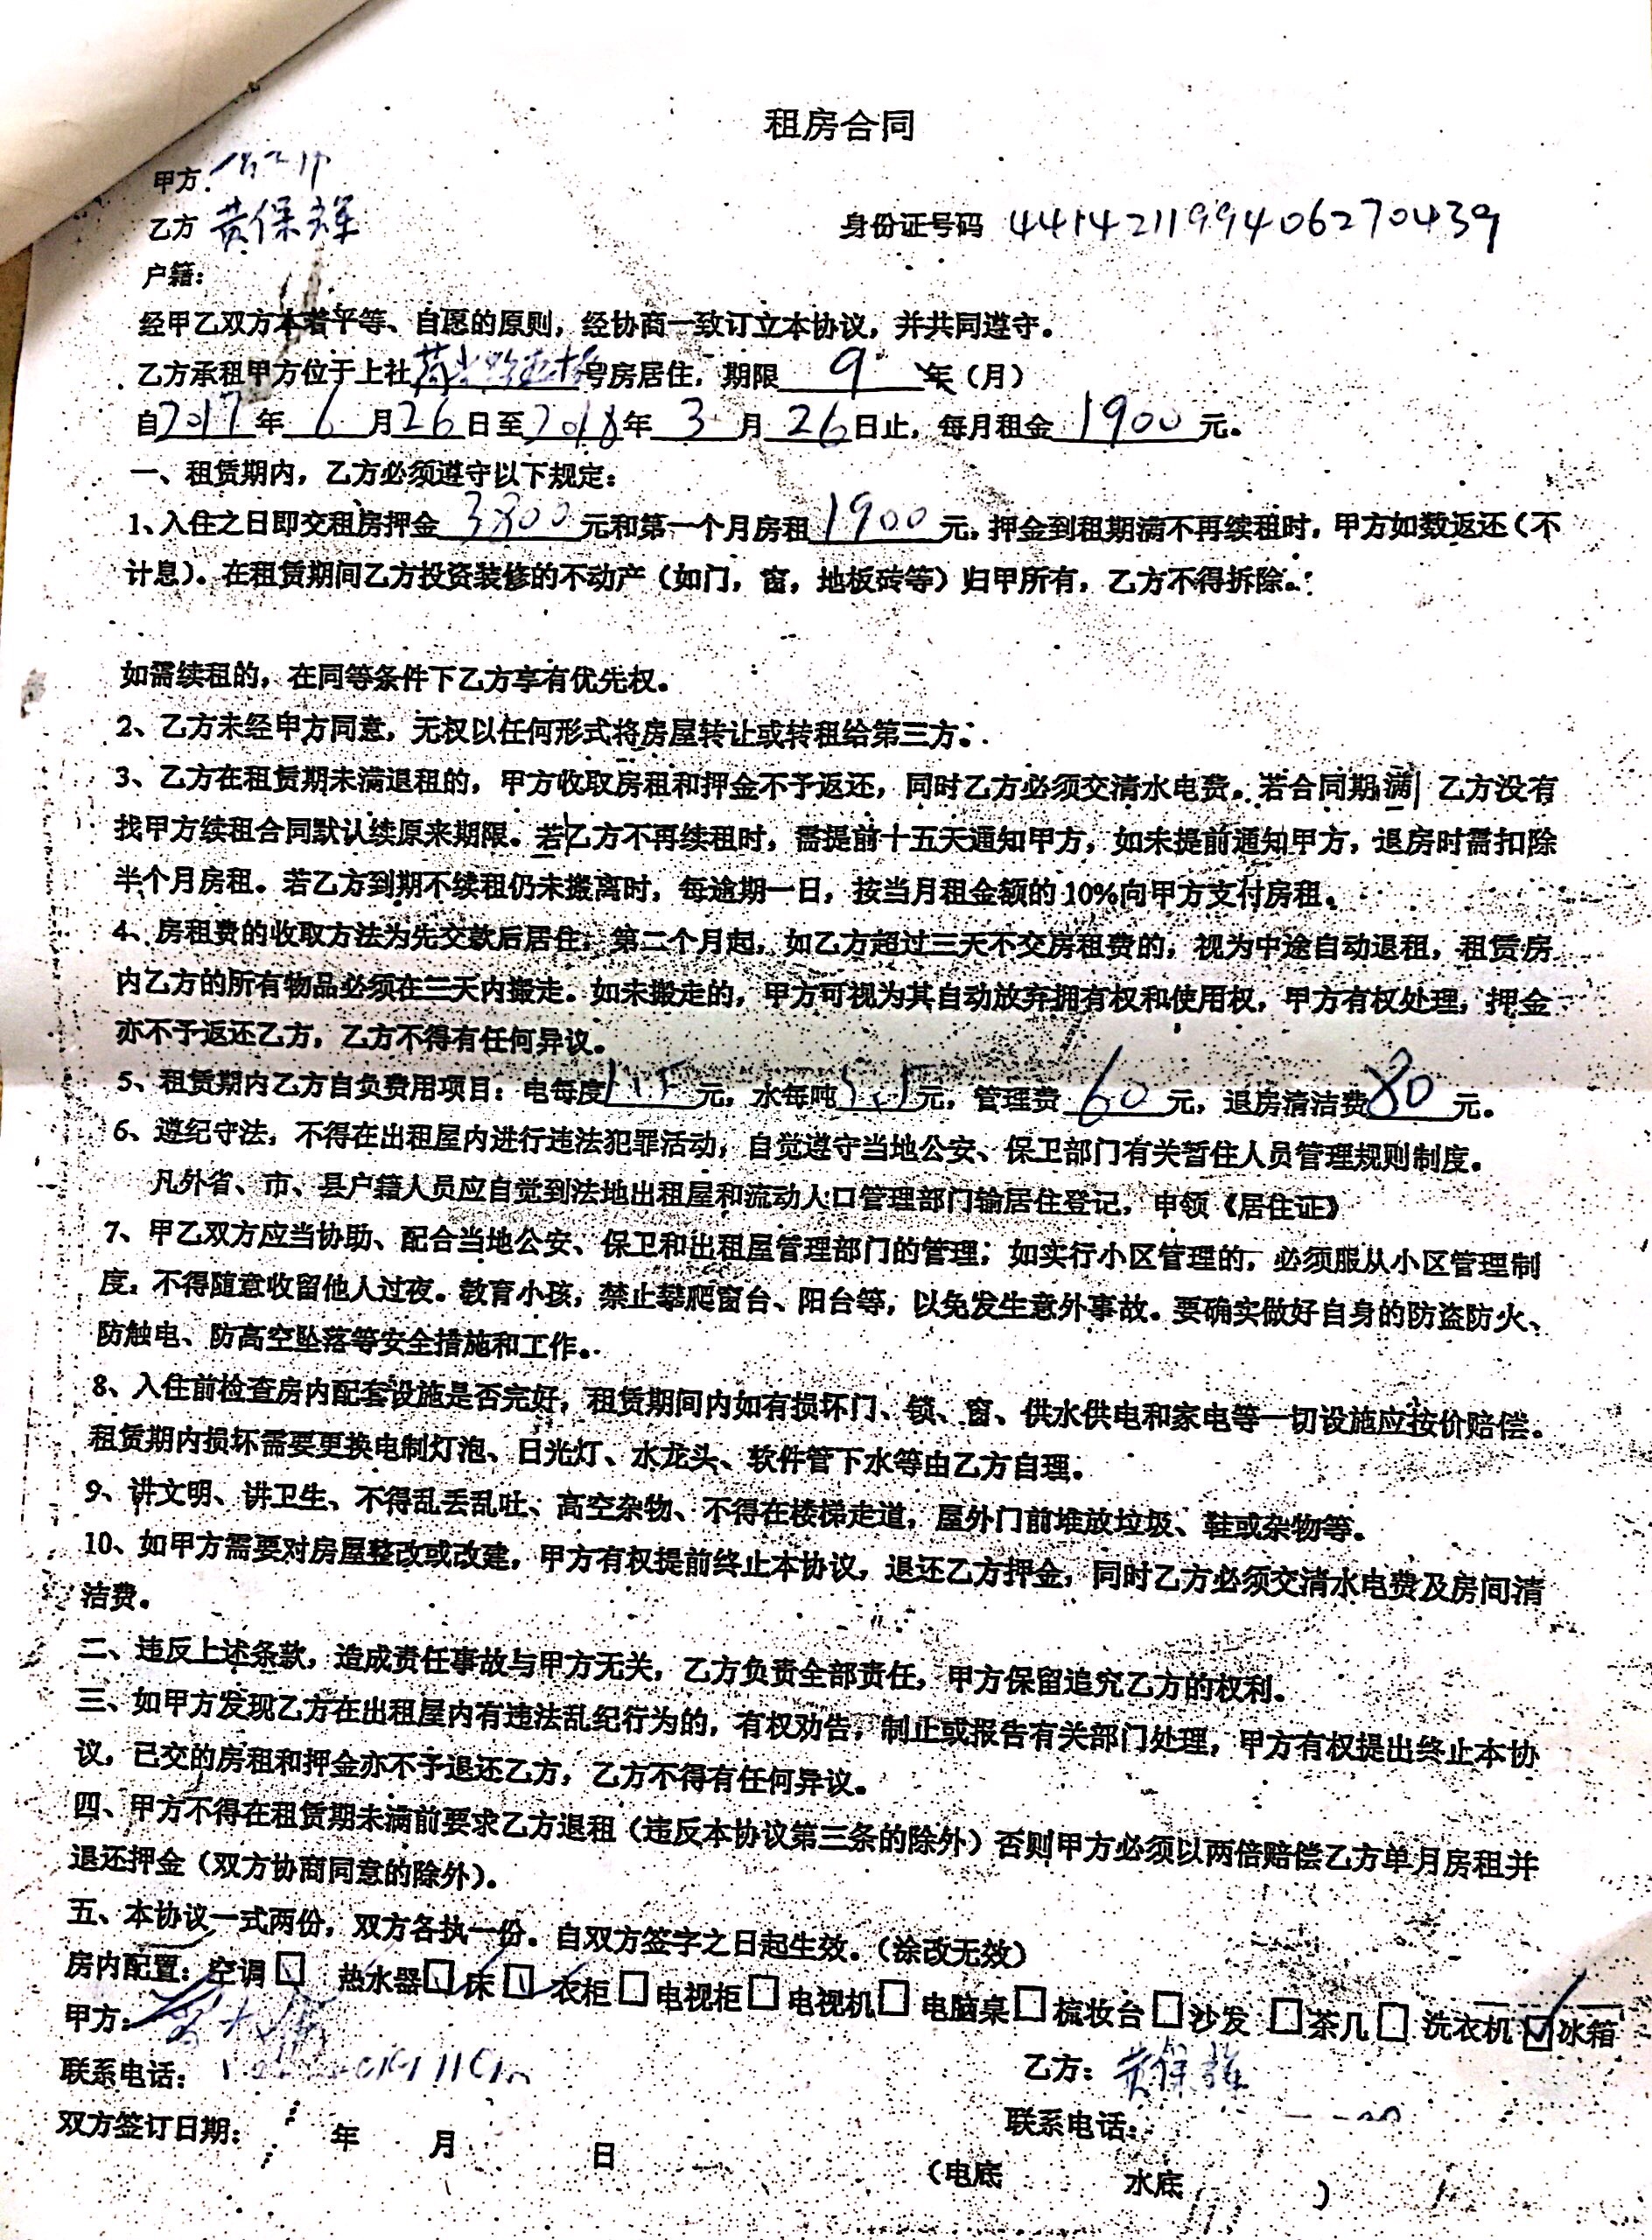 租房合同
甲方:
乙方 黄保辉 身份证号码 441421199406270439
户籍:
经甲乙双方本着平等、自愿的原则，经协商一致订立本协议，并共同遵守。
乙方承租甲方位于上社 号房居住，期限 9 年（月）
自2017年 6 月26日至2018年 3 月 26日止，每月租金 1900 元。
一、租赁期内，乙方必须遵守以下规定：
1、入住之日即交租房押金 3800 元和第一个月房租 1900 元，押金到租期满不再续租时，甲方如数返还（不
计息）。在租赁期间乙方投资装修的不动产（如门，窗，地板砖等）归甲所有，乙方不得拆除。
如需续租的，在同等条件下乙方享有优先权。
2、乙方未经甲方同意，无权以任何形式将房屋转让或转租给第三方。
3、乙方在租赁期未满退租的，甲方收取房租和押金不予返还，同时乙方必须交清水电费。若合同期满 乙方没有
找甲方续租合同默认续原来期限。若乙方不再续租时，需提前十五天通知甲方，如未提前通知甲方，退房时需扣除
半个月房租。若乙方到期不续租仍未搬离时，每逾期一日，按当月租金额的10%向甲方支付房租。
4、房租费的收取方法为先交款后居住；第二个月起，如乙方超过三天不交房租费的，视为中途自动退租，租赁房
内乙方的所有物品必须在三天内搬走。如未搬走的，甲方可视为其自动放弃拥有权和使用权，甲方有权处理，押金
亦不予返还乙方，乙方不得有任何异议。
5、租赁期内乙方自负费用项目：电每度 元，水每吨 元，管理费 60 元，退房清洁费 80 元。
6、遵纪守法，不得在出租屋内进行违法犯罪活动，自觉遵守当地公安、保卫部门有关暂住人员管理规则制度。
凡外省、市、县户籍人员应自觉到法地出租屋和流动人口管理部门输居住登记，申领《居住证》
7、甲乙双方应当协助、配合当地公安、保卫和出租屋管理部门的管理；如实行小区管理的，必须服从小区管理制
度，不得随意收留他人过夜。教育小孩，禁止攀爬窗台、阳台等，以免发生意外事故。要确实做好自身的防盗防火、
防触电、防高空坠落等安全措施和工作。
8、入住前检查房内配套设施是否完好，租赁期间内如有损坏门、锁、窗、供水供电和家电等一切设施应按价赔偿。
租赁期内损坏需要更换电制灯泡、日光灯、水龙头、软件管下水等由乙方自理。
9、讲文明、讲卫生、不得乱丢乱吐、高空杂物、不得在楼梯走道，屋外门前堆放垃圾、鞋或杂物等。
10、如甲方需要对房屋整改或改建，甲方有权提前终止本协议，退还乙方押金，同时乙方必须交清水电费及房间清
洁费。
二、违反上述条款，造成责任事故与甲方无关，乙方负责全部责任，甲方保留追究乙方的权利。
三、如甲方发现乙方在出租屋内有违法乱纪行为的，有权劝告，制止或报告有关部门处理，甲方有权提出终止本协
议，已交的房租和押金亦不予退还乙方，乙方不得有任何异议。
四、甲方不得在租赁期未满前要求乙方退租（违反本协议第三条的除外）否则甲方必须以两倍赔偿乙方单月房租并
退还押金（双方协商同意的除外）。
五、本协议一式两份，双方各执一份。自双方签字之日起生效。（涂改无效）
房内配置：空调☑ 热水器☑床☑ 衣柜□电视柜□电视机□电脑桌□梳妆台□沙发 □茶几□ 洗衣机☑冰箱
甲方:
乙方: 黄保辉
联系电话:
联系电话:
双方签订日期: 年 月 日
（电底 水底 ）